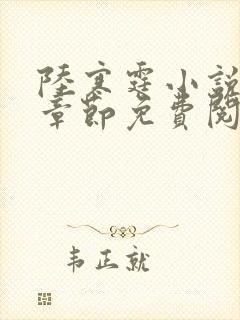 陸寒霆小說
章節免費閱
韦正就